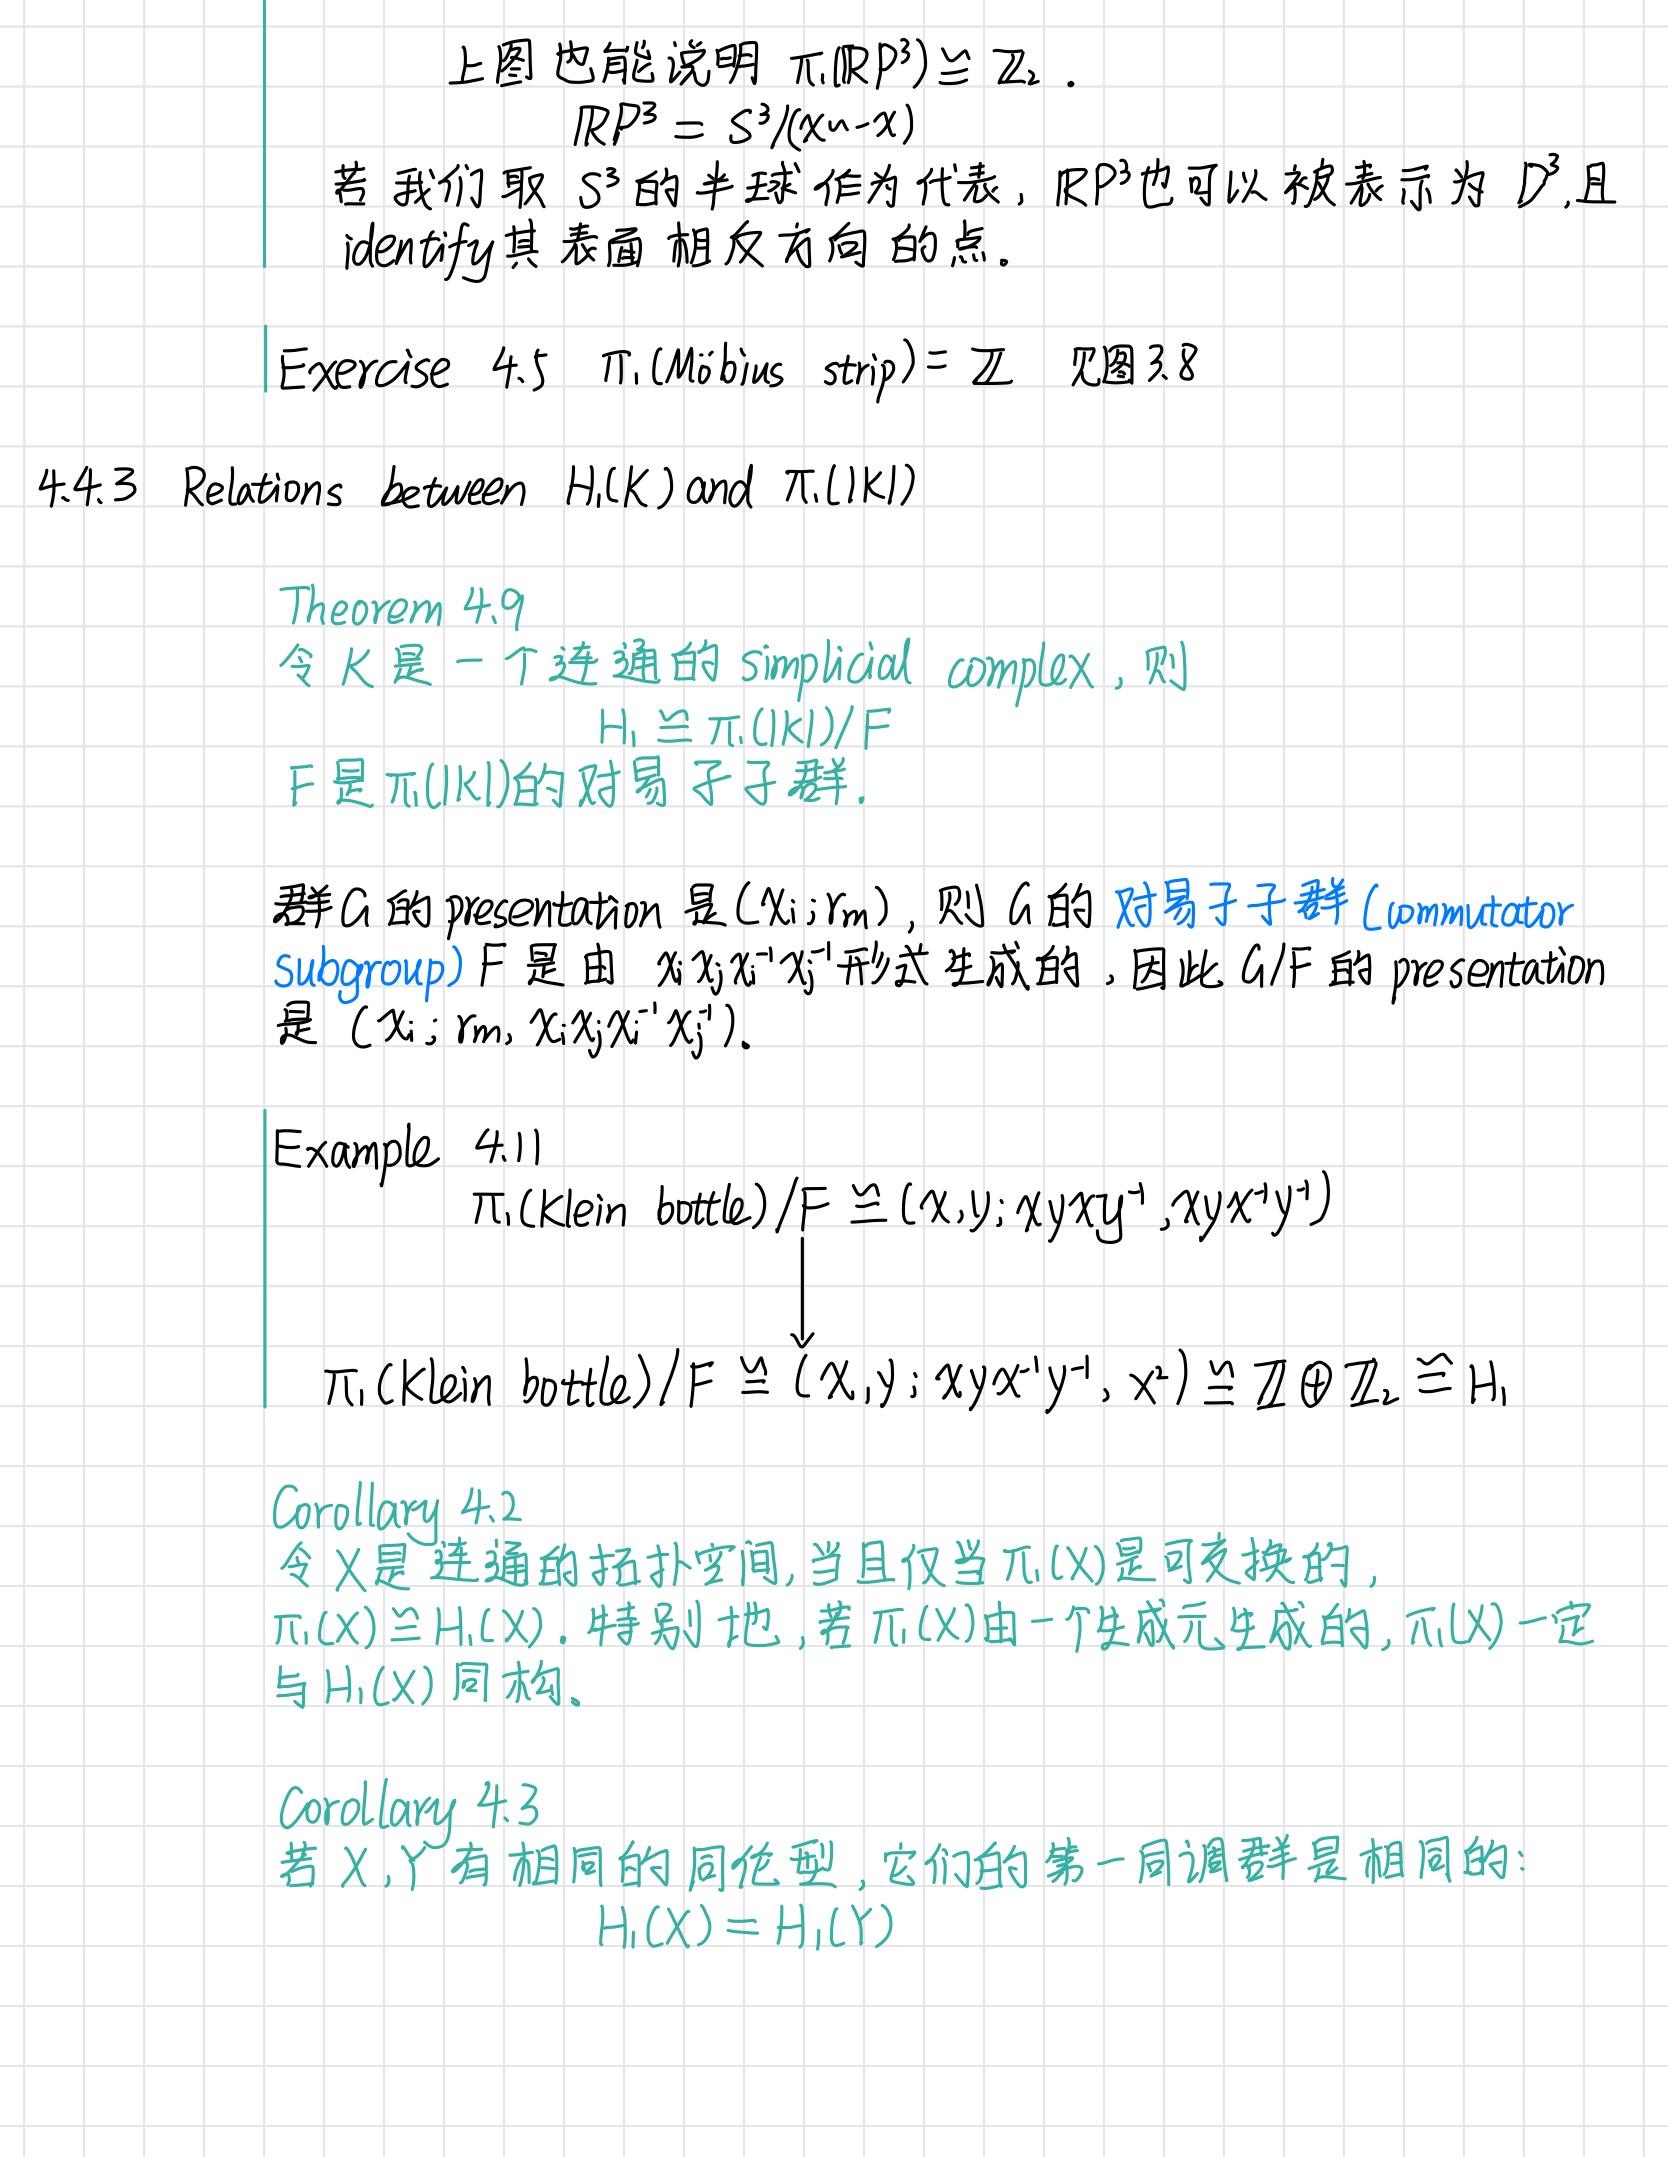 上图也能说明 π₁(ℝP³) ≅ ℤ₂ .
ℝP³ = S³/(x~-x)
若我们取 S³的半球作为代表, ℝP³也可以被表示为 D³,且
identify其表面相反方向的点。
Exercise 4.5 π₁(Möbius strip) = ℤ 见图3.8
4.4.3 Relations between H₁(K) and π₁(|K|)
Theorem 4.9
令 K 是一个连通的 simplicial complex , 则
H₁ ≅ π₁(|K|)/F
F 是 π₁(|K|)的对易子子群.
群G 的 presentation 是 (xᵢ; rₘ), 则 G 的 对易子子群 (commutator
subgroup) F 是由 xᵢxⱼxᵢ⁻¹xⱼ⁻¹ 形式生成的 , 因此 G/F 的 presentation
是 (xᵢ; rₘ, xᵢxⱼxᵢ⁻¹xⱼ⁻¹).
Example 4.11
π₁(Klein bottle)/F ≅ (x,y; xyxy⁻¹, xyx⁻¹y⁻¹)
↓
π₁(Klein bottle)/F ≅ (x,y; xyx⁻¹y⁻¹, x²) ≅ ℤ⊕ℤ₂ ≅ H₁
Corollary 4.2
令 X是 连通的拓扑空间, 当且仅当 π₁(X)是可交换的,
π₁(X) ≅ H₁(X). 特别地, 若 π₁(X)由一个生成元生成的, π₁(X)一定
与 H₁(X) 同构。
Corollary 4.3
若 X,Y 有相同的同伦型, 它们的第一同调群是相同的:
H₁(X) = H₁(Y)